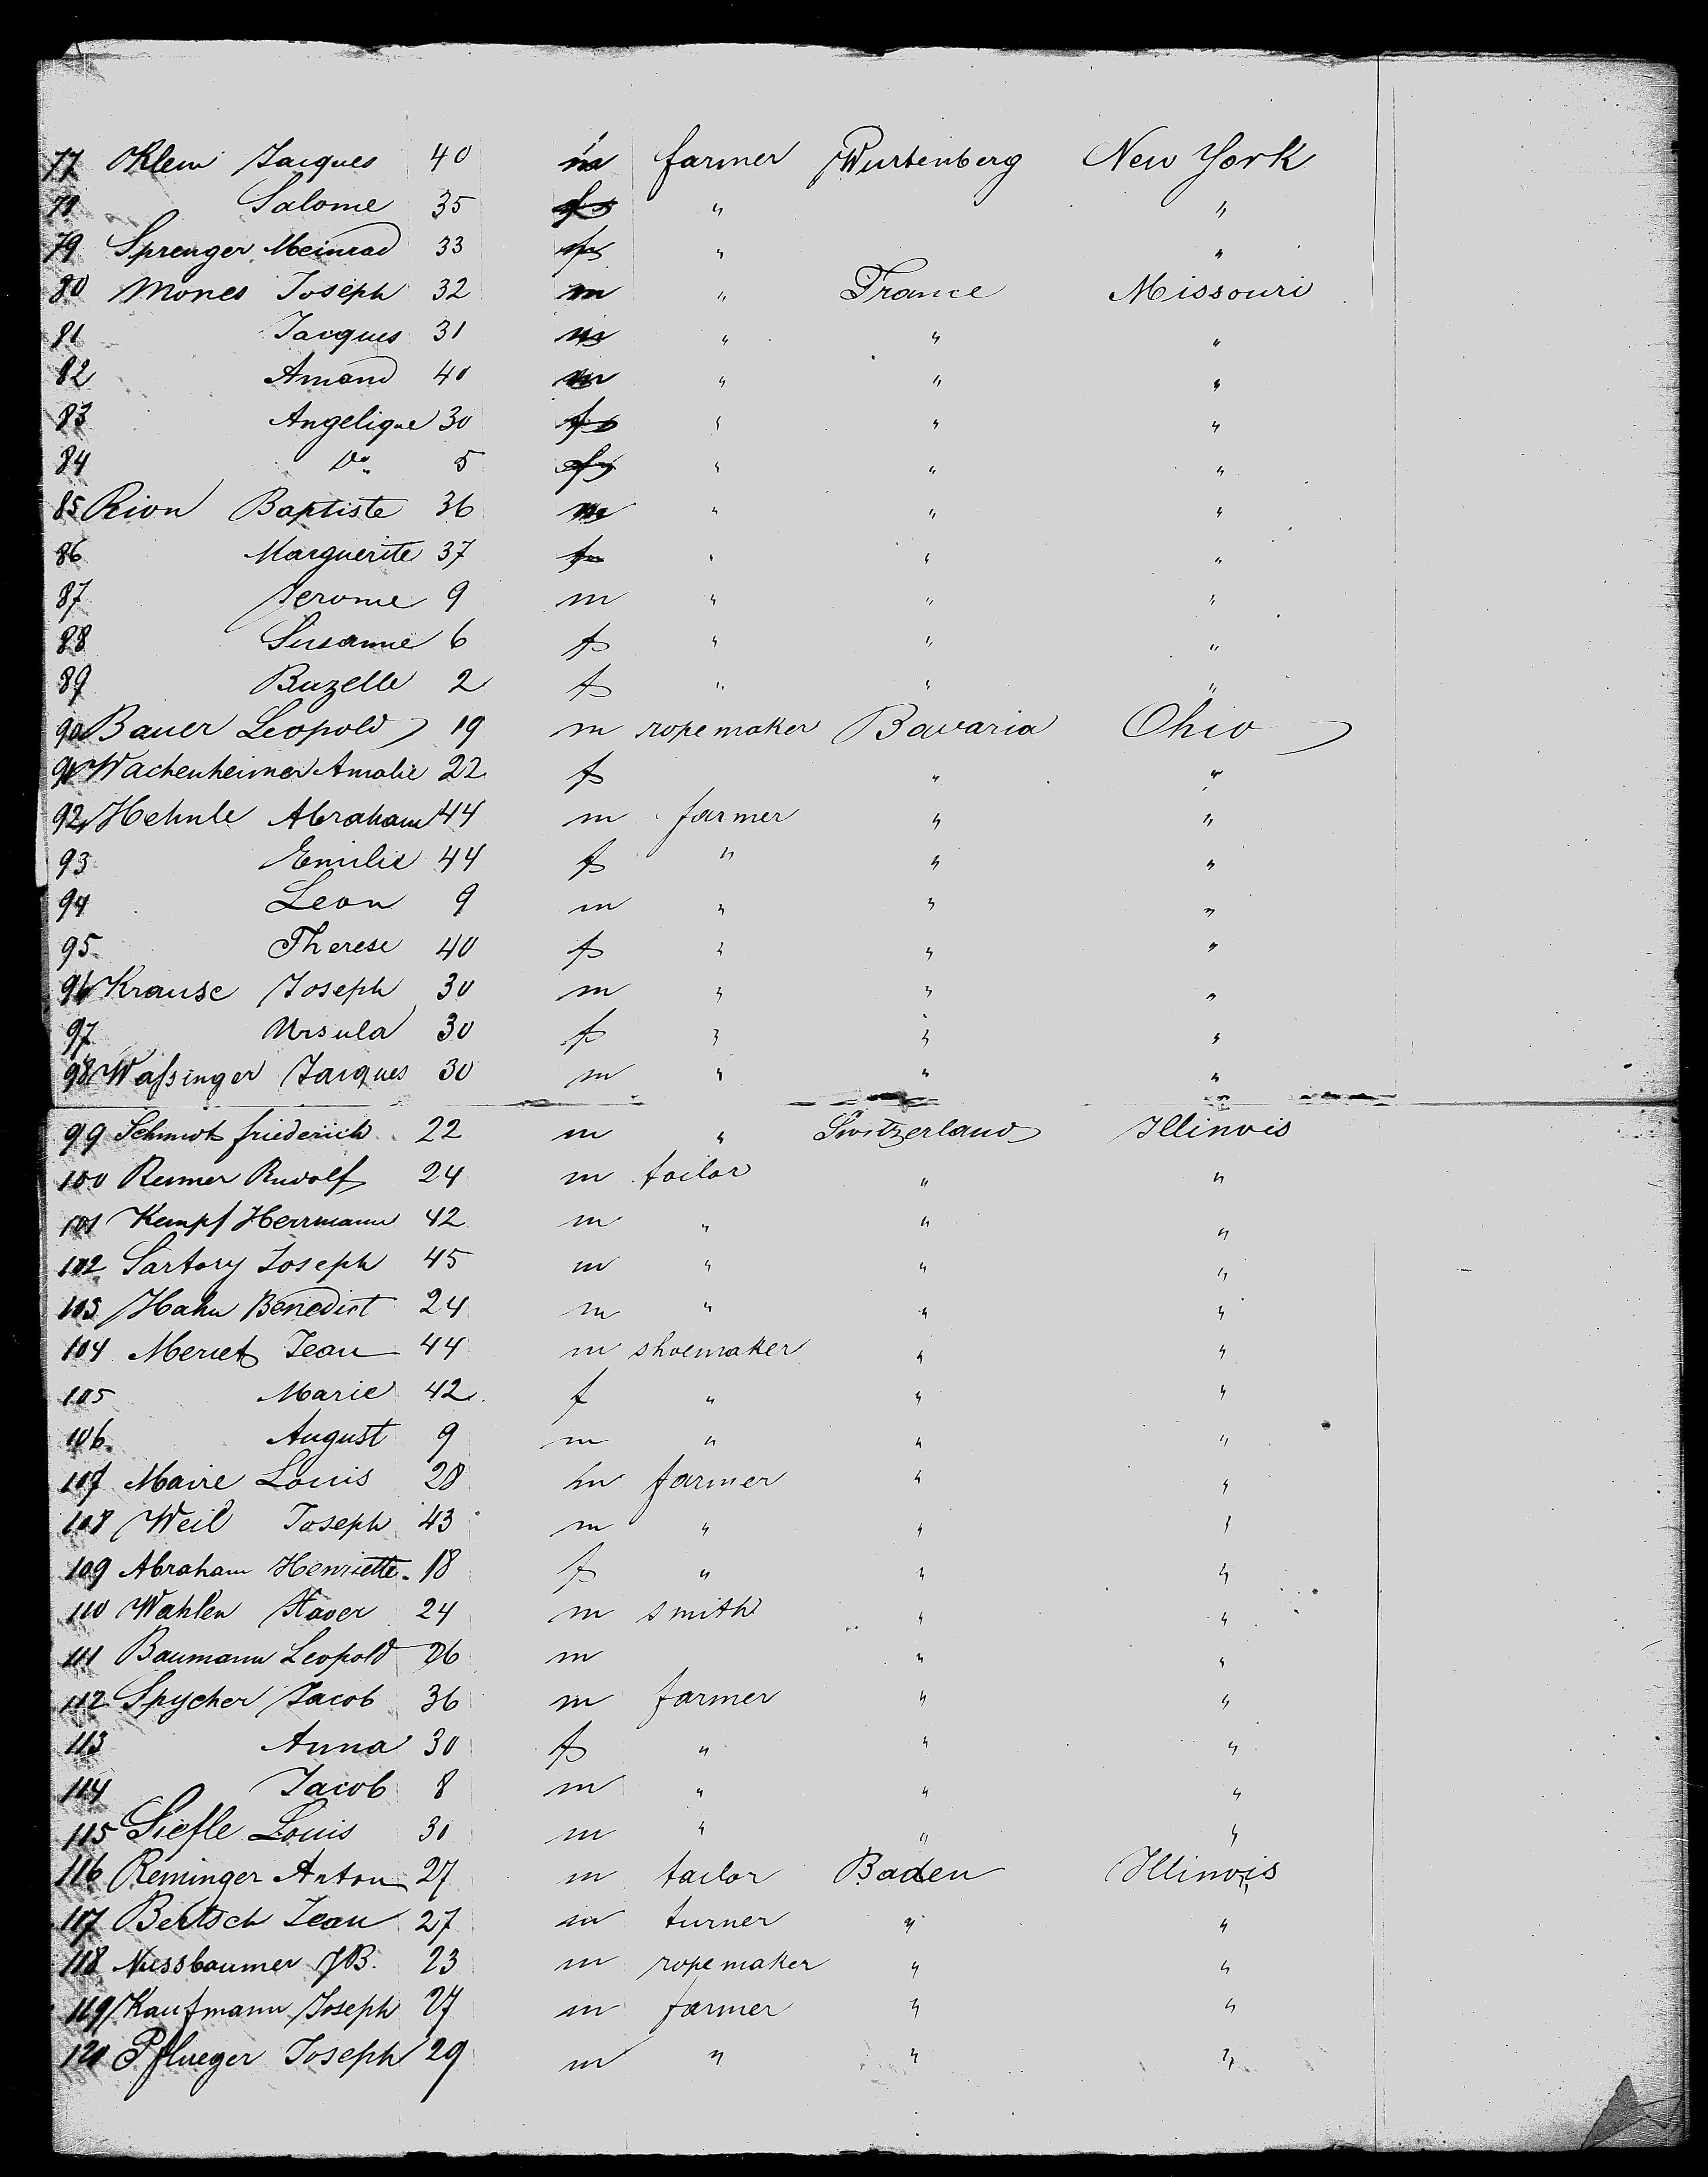 77 Klein Jacques 40 m farmer Wurtenberg New York
78 Salome 35 f " "
79 Sprenger Meinrad 33 " "
80 Mones Joseph 32 m " France Missouri
81 Jacques 31 m " " "
82 Amand 40 m " " "
83 Angelique 30 f " " "
84 Do 5 f " " "
85 Rion Baptiste 36 m " " "
86 Marguerite 37 f " " "
87 Jerome 9 m " " "
88 Susanne 6 f " " "
89 Buzelle 2 f " " "
90 Bauer Leopold 19 m ropemaker Bavaria Ohio
91 Wachenheimer Amalie 22 f " "
92 Hehnle Abraham 44 m farmer " "
93 Emilie 44 f " " "
94 Leon 9 m " " "
95 Therese 40 f " " "
96 Krause Joseph 30 m " " "
97 Ursula 30 f " " "
98 Wassinger Jacques 30 m " " "
99 Schmidt friederich 22 m " Switzerland Illinois
100 Rudolf 24 m tailor " "
101 Kempf Herrmann 42 m " " "
102 Sartory Joseph 45 m " " "
103 Hahn Benedict 24 m " " "
104 Meriet Jean 44 m shoemaker " "
105 Marie 42 f " " "
106 August 9 m " " "
107 Maire Louis 28 m farmer " "
108 Weil Joseph 43 m " " "
109 Abraham Henriette 18 f " " "
110 Wahlen Xaver 24 m smith " "
111 Baumann Leopold 26 m " "
112 Spycher Jacob 36 m farmer " "
113 Anna 30 f " " "
114 Jacob 8 m " " "
115 Siefle Louis 30 m " " "
116 Reininger Anton 27 m tailor Baden Illinois
117 Bertsch Jean 27 m turner " "
118 Nussbaumer JB. 23 m ropemaker " "
119 Kaufmann Joseph 27 m farmer " "
120 Pflueger Joseph 29 m " " "